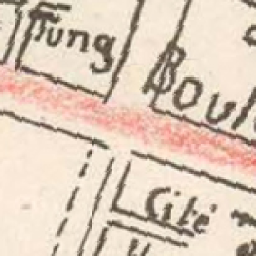 Tung
Boul
Cité